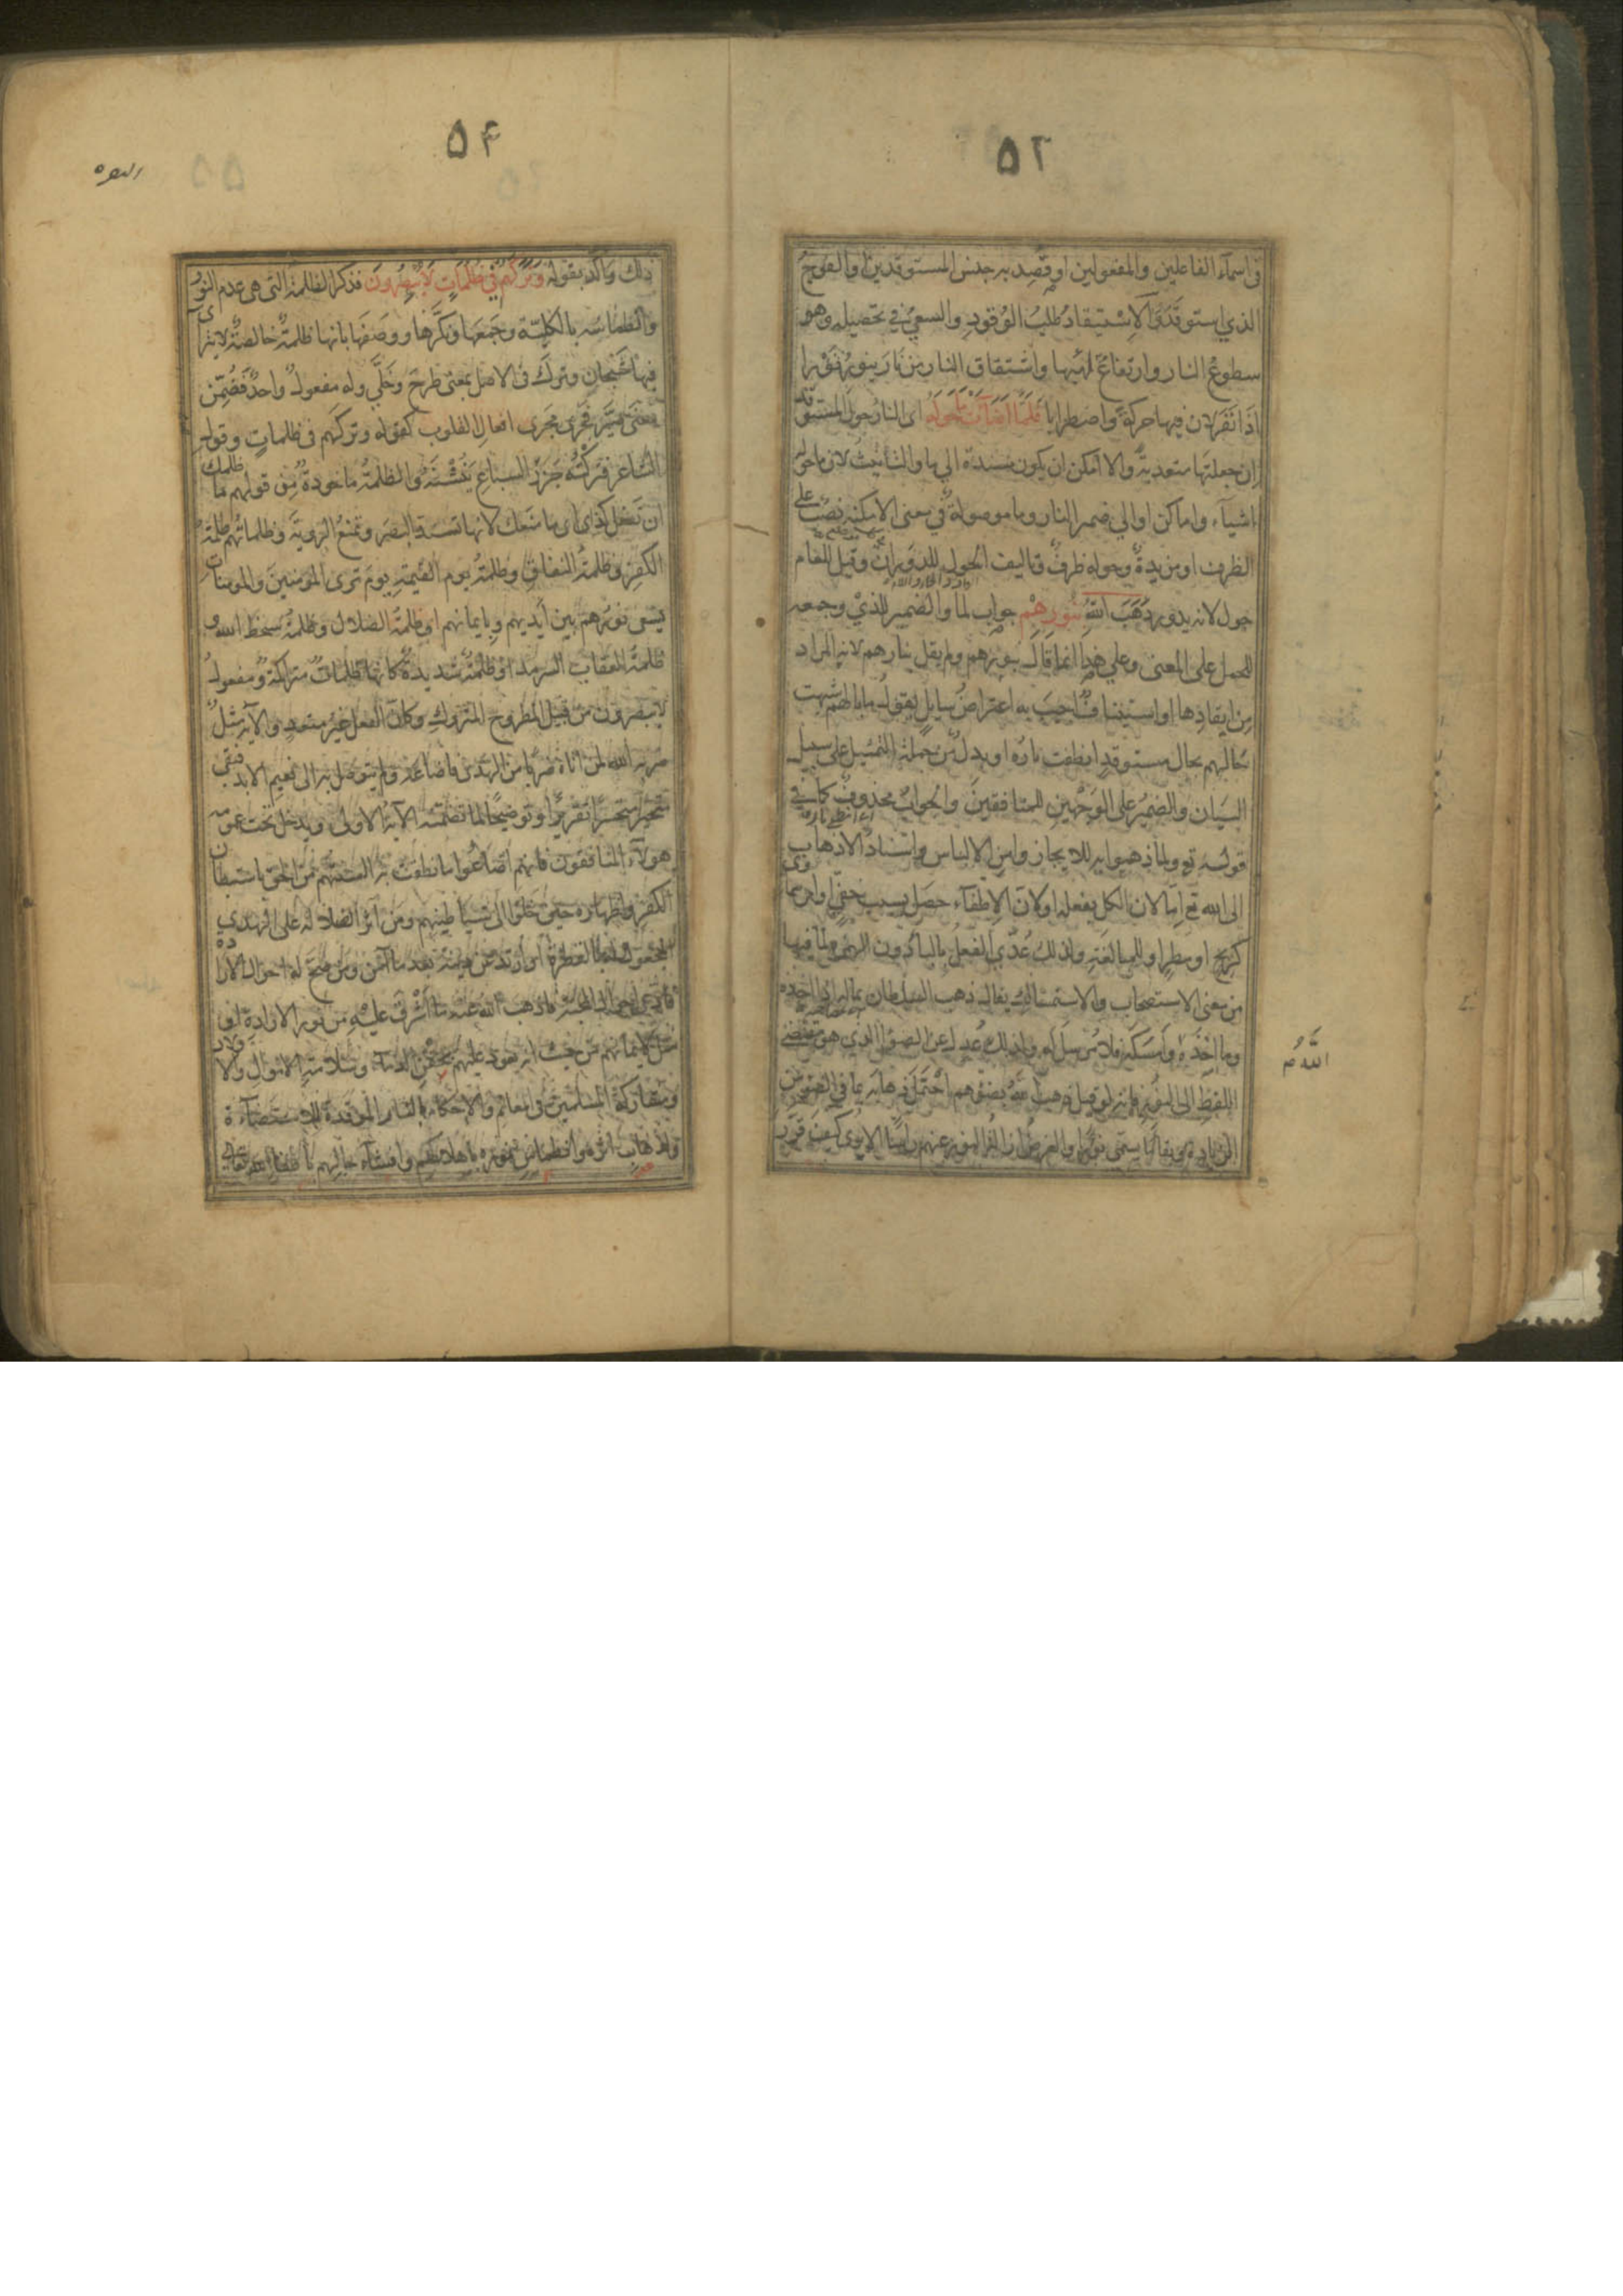 ۵۲
فى اسمآء الفاعلين والمفعولين او قصد به جنس المستوقدين او الفوج
الذي استوقد والاستيقاد طلب الوقود والسعى في تحصيله وهو
سطوع النار وارتفاع لهبها واشتقاق النار من نار ينور نورا
اذا نفر لان فيها حركة واضطرابا فلما اضآءت ما حوله اى النار حول المستوقد
ان جعلتها متعدية والا امكن ان يكون مسندة الي ما والتأنيث لان ما حوله
اشيآء واماكن او الي ضمير النار وما موصولة في معنى الامكنة نصب على
الظرف او مزيدة وحوله ظرف وتاليف الحول للدوران وقيل للعام
حول لانه يدور ذهب الله بنورهم جواب لما والضمير للذي وجمعه
للحمل على المعنى وعلي هذا انما قال بنورهم ولم يقل بنارهم لانه المراد
من ايقادها او استيناف اجيب به اعتراض سايل يقول ما بالهم شبهت
حالهم بحال مستوقد انطفت ناره او بدل من جملة التمثيل على سبيل
البيان والضمير على الوجهين للمنافقين والجواب محذوف كما في
قوله تع ولما ذهبوا به للايجاز وامن الالباس واسناد الاذهاب
الى الله تع اما لان الكل بفعله او لان الاطفآء حصل بسبب خفي او امر سماوى
كريح او مطر او للمبالغة ولذلك عدي الفعل بالبآء دون الهمزة لما فيها
من معنى الاستصحاب والاستمساك يقال ذهب السلطان بماله اذا اخذه
وما اخذه وامسكه فلا مرسل له ولذلك عدل عن الضوء الذي هو مقتضى
اللفظ الى النور فانه لو قيل ذهب الله بضوءهم احتمل ذهابه بما في الضوء من
الزيادة وبقآء ما يسمى نورا والغرض ازالة النور عنهم رأسا الا يرى كيف قرر
الله م
۵۴
البقره
ذلك واكد بقوله وتركهم في ظلمات لا يبصرون فذكر الظلمة التى هى عدم النور
وانطماسه بالكلية وجمعها ونكرها ووصفها بانها ظلمة خالصة لا يترآى
فيها شبحان وترك فى الاصل بمعنى طرح وخلي وله مفعول واحد فضمن
معنى صير فجرى مجرى افعال القلوب كقوله وتركهم فى ظلمات وقول
الشاعر فتركته جزر السباع ينشنه والظلمة ماخوذة من قولهم ما ظلمك
ان تفعل كذا اى ما منعك لانها تسد البصر وتمنع الروية وظلماتهم ظلمة
الكفر وظلمة النفاق وظلمة يوم القيمة يوم ترى المومنين والمومنات
يسعى نورهم بين ايديهم وبايمانهم او ظلمة الضلال وظلمة سخط الله و
ظلمة العقاب السرمد او ظلمة شديدة كانها ظلمات متراكمة ومفعول
لا يبصرون من قبيل المطروح المتروك وكان الفعل غير متعد والآية مثل
ضربه الله لمن اتاه ضربا من الهدى فاضاعه ولم يتوصل به الى نعيم الابد فبقى
متحيرا متحسرا تقريرا وتوضيحا لما تضمنته الآية الاولى ويدخل تحت عمومه
هولآء المنافقون فانهم اضاعوا ما نطقت به السنتهم من الحق باستبطان
الكفر واظهاره حين خلوا الى شياطينهم ومن آثر الضلالة على الهدى
المجعول له بالفطرة او ارتد عن دينه بعد ما آمن ومن صح له احوال الارادة
فادعى احوال المحبة فاذهب الله عنه ما اشرق عليه من نور الارادة او
مثل لايمانهم من حيث انه يعود عليهم بحقن الدمآء وسلامة الاموال والاولاد
ومشاركة المسلمين فى المغانم والاحكام بالنار الموقدة للاستضآءة
ولذهاب اثره وانطماس نوره باهلاكهم وافشآء حالهم باطفآء الله تعالى